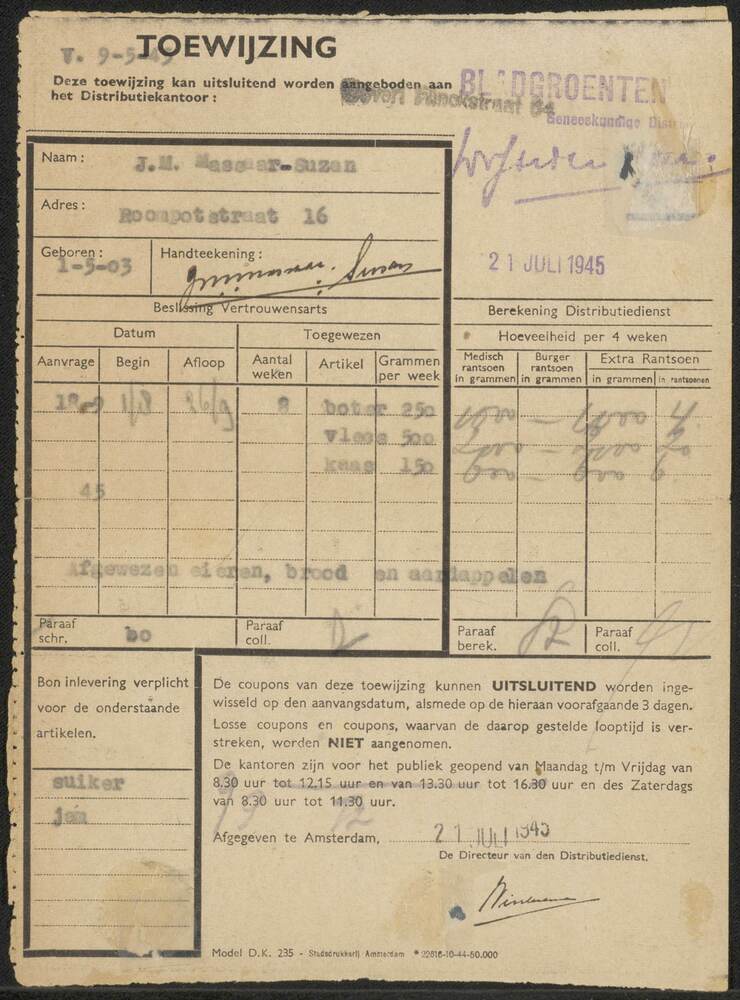 TOEWIJZING
Deze toewijzing kan uitsluitend worden aangeboden aan
het Distributiekantoor :
BLADGROENTEN
Geneeskundige
Naam : J.M. Suzan
Adres : Roompotstraat 16
Geboren : 1-5-03
Handteekening :
21 JULI 1945
Beslissing Vertrouwensarts
Berekening Distributiedienst
Datum Toegewezen
Hoeveelheid per 4 weken
Aanvrage Begin Afloop Aantal weken Artikel Grammen per week
Medisch rantsoen in grammen Burger rantsoen in grammen Extra Rantsoen in grammen in rantsoenen
1/8 8 boter 250
vlees 500
kaas 150
45
Afgewezen eieren, brood en aardappelen
Paraaf schr. bo Paraaf coll. Paraaf berek. Paraaf coll.
Bon inlevering verplicht
voor de onderstaande
artikelen.
suiker
jam
De coupons van deze toewijzing kunnen UITSLUITEND worden inge-
wisseld op den aanvangsdatum, alsmede op de hieraan voorafgaande 3 dagen.
Losse coupons en coupons, waarvan de daarop gestelde looptijd is ver-
streken, worden NIET aangenomen.
De kantoren zijn voor het publiek geopend van Maandag t/m Vrijdag van
8.30 uur tot 12.15 uur en van 13.30 uur tot 16.30 uur en des Zaterdags
van 8.30 uur tot 11.30 uur.
Afgegeven te Amsterdam, 21 JULI 1945
De Directeur van den Distributiedienst.
Model D.K. 235 - Stadsdrukkerij Amsterdam * 22616-10-44-50.000